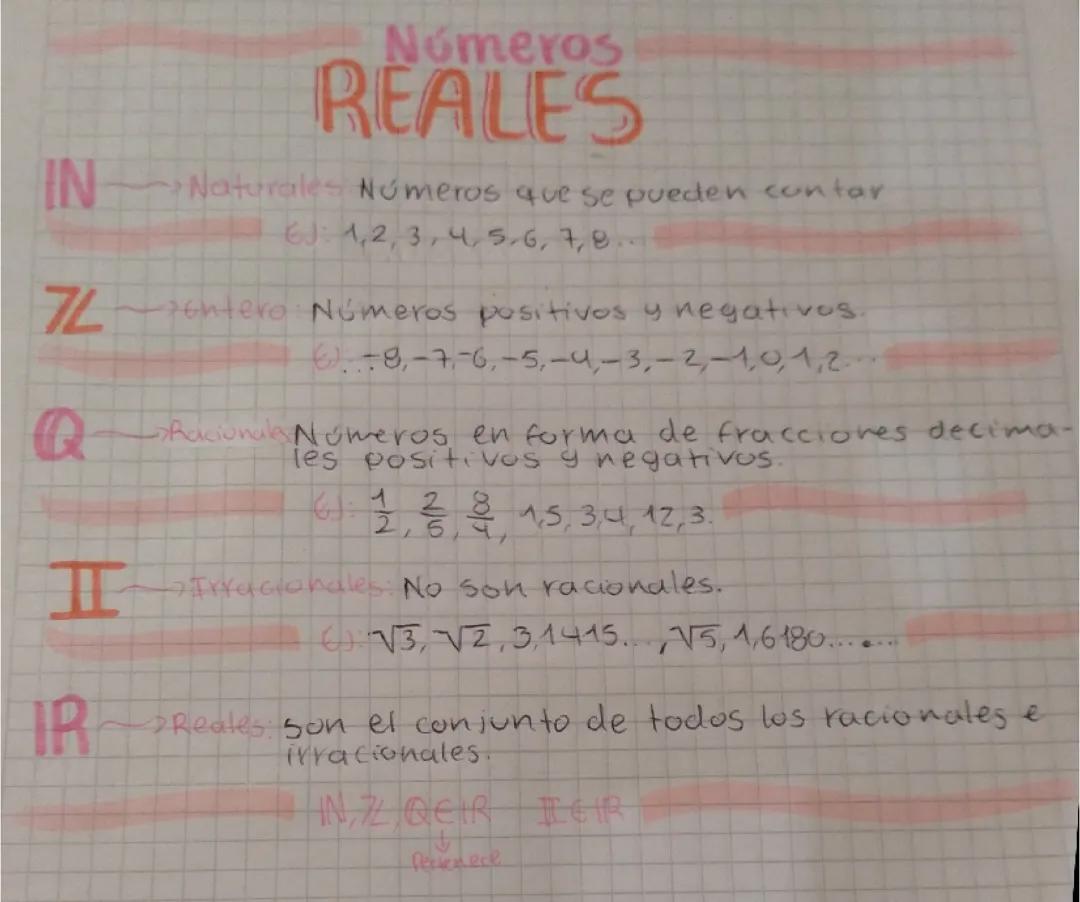 Números
REALES
IN → Naturales: Números que se pueden contar
EJ: 1,2,3,4,5,6,7,8...
Z → Entero: Números positivos y negativos.
EJ: ...-8,-7,-6,-5,-4,-3,-2,-1,0,1,2...
Q → Racionales Números en forma de fracciones decima-
les positivos y negativos.
EJ: 1/2, 2/5, 8/4, 1,5, 3,4, 12,3.
II → Irracionales: No son racionales.
EJ: √3, √2, 3,1415..., √5, 1,6180.......
IR → Reales: son el conjunto de todos los racionales e
irracionales.
IN, Z, Q ∈ IR II ∈ IR
↓
Pertenece